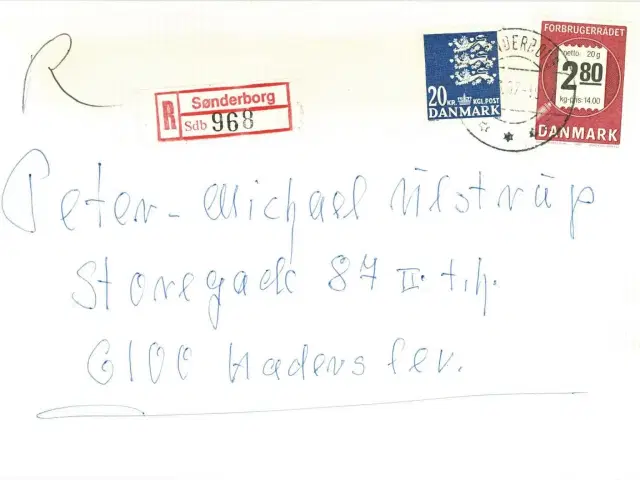 R
FORBRUGERRÅDET
netto: 20 g
2 80
kg-pris: 14.00
DANMARK
20 KR. KGL. POST
DANMARK
R Sønderborg
Sdb 968
Peter-Michael Ulstrup
Storegade 87 II. t.h.
6100 Haderslev.